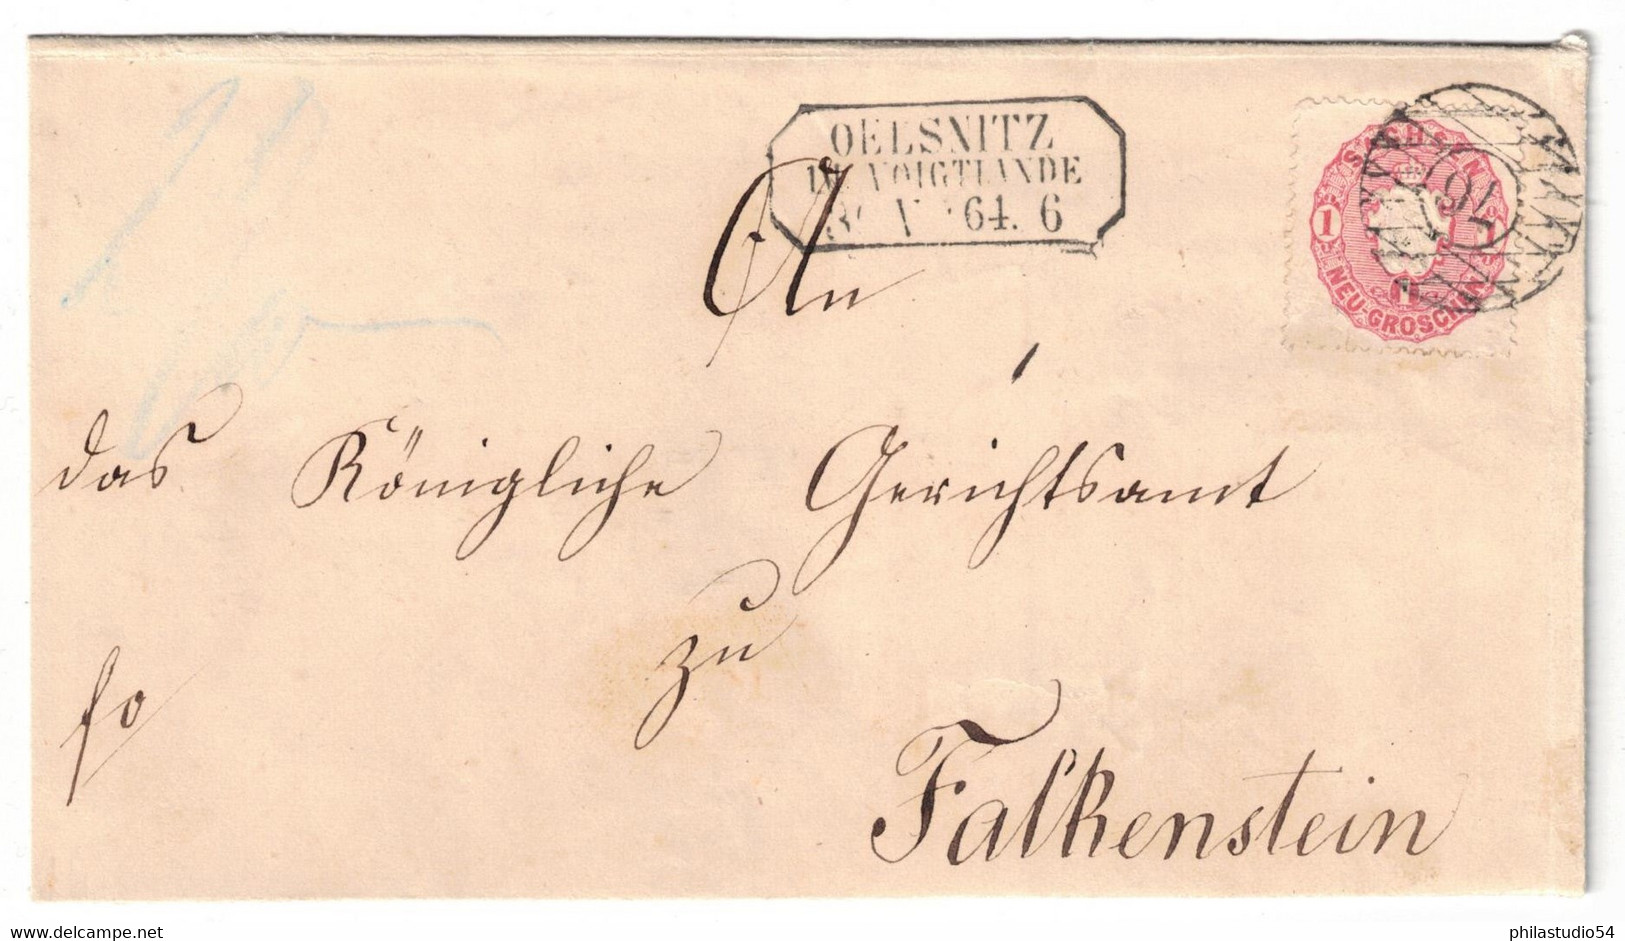 OELSNITZ
IM VOIGTLANDE
64. 6
SACHSEN
1 1
1
NEU-GROSCHEN
76
An
das Königliche Gerichtsamt
zu
fo
Falkenstein
delcampe.net
philastudio54